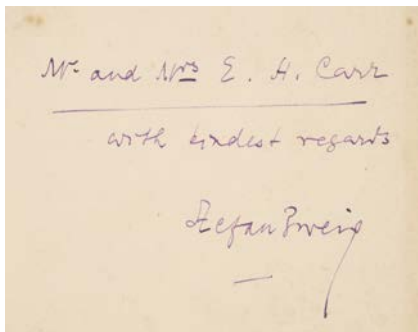 Mr. and Mrs E. H. Carr
with kindest regards
Stefan Zweig